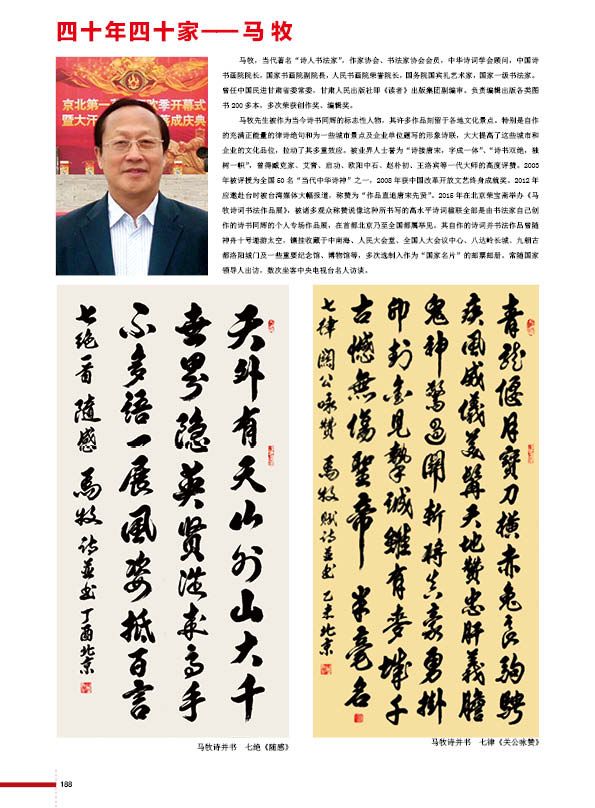 四十年四十家——马 牧
京北第一
季开幕式
暨大汗
落成庆典
马牧，当代著名“诗人书法家”，作家协会、书法家协会会员，中华诗词学会顾问，中国诗
书画院院长，国家书画院副院长，人民书画院荣誉院长，国务院国宾礼艺术家，国家一级书法家。
曾任中国民进甘肃省委常委，甘肃人民出版社即《读者》出版集团副编审。负责编辑出版各类图
书200多本，多次荣获创作奖、编辑奖。
马牧先生被作为当今诗书同辉的标志性人物，其许多作品刻留于各地文化景点。特别是自作
的充满正能量的律诗绝句和为一些城市景点及企业单位题写的形象诗联，大大提高了这些城市和
企业的文化品位，拉动了其多重效应。被业界人士誉为“诗接唐宋，字成一体”、“诗书双绝，独
树一帜”，曾得臧克家、艾青、启功、欧阳中石、赵朴初、王洛宾等一代大师的高度评赞。2003
年被评授为全国50名“当代中华诗神”之一，2008年获中国改革开放文艺终身成就奖。2012年
应邀赴台时被台湾媒体大幅报道，称赞为“作品直追唐宋先贤”。2015年在北京荣宝斋举办《马
牧诗词书法作品展》，被诸多观众称赞说像这种所书写的高水平诗词楹联全部是由书法家自己创
作的诗书同辉的个人专场作品展，在首都北京乃至全国都属罕见。其自作的诗词并书法作品曾随
神舟十号遨游太空，镶挂收藏于中南海、人民大会堂、全国人大会议中心、八达岭长城、九朝古
都洛阳城门及一些重要纪念馆、博物馆等，多次选制入作为“国家名片”的邮票邮册。常随国家
领导人出访，数次坐客中央电视台名人访谈。
天外有天山外山大千
世界隐英贤從来高手
不多语一展風姿抵百言
七绝一首 随感 馬牧诗並书 丁酉北京
青龙偃月寶刀横赤兔良驹騁
疾風威儀美髯天地赞忠肝義膽
鬼神驚過關斩將真豪勇掛
印封金見摯誠雖有麥城千
古憾無傷聖帝半毫名
七律 關公咏赞 馬牧赋诗並书 乙未北京
马牧诗并书 七绝《随感》
马牧诗并书 七律《关公咏赞》
188